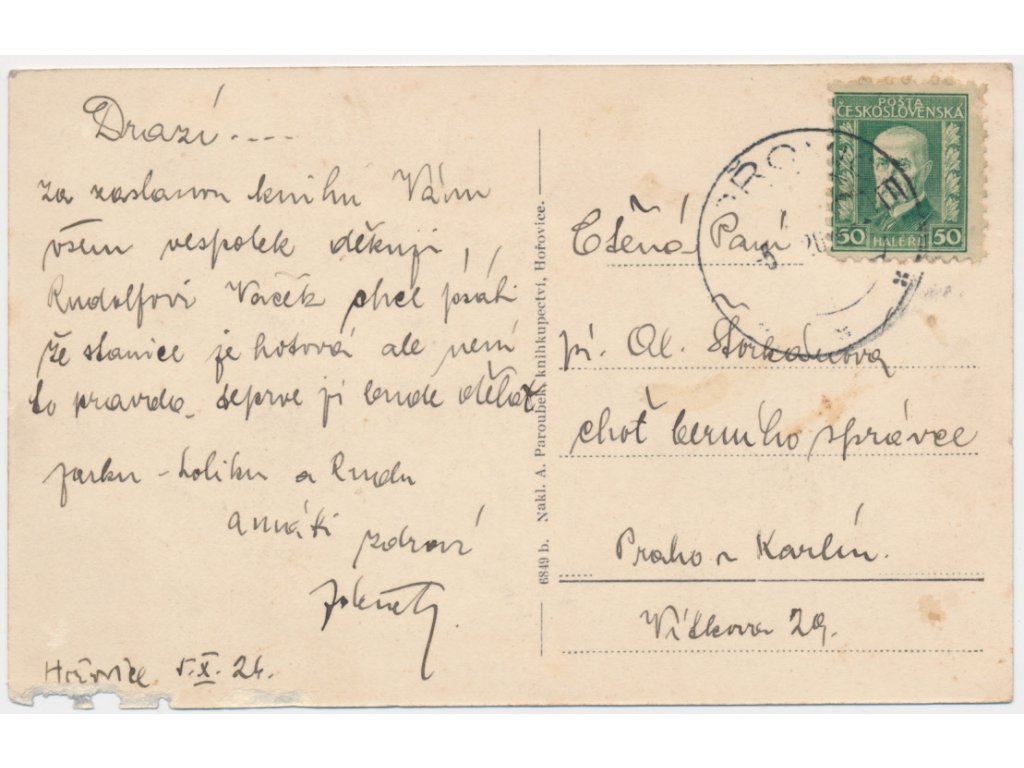 Drazí....
za zaslanou knihu Vám
všem vespolek děkuji,
Rudolfovi Vašek chcel psáti
že stanice je hotová ale není
to pravda, teprve ji bude dělat
Jarku - holiku a Rudu
a máti zdraví
Hořovice 5.X.26.
6849 b. Nakl. A. Paroubek, knihkupectví, Hořovice.
POŠTA
ČESKOSLOVENSKÁ
50 HALÉŘŮ 50
Ctěná Paní
pí. Al. Štorkánova
choť berního správce
Praha - Karlín.
Vítkova 29.